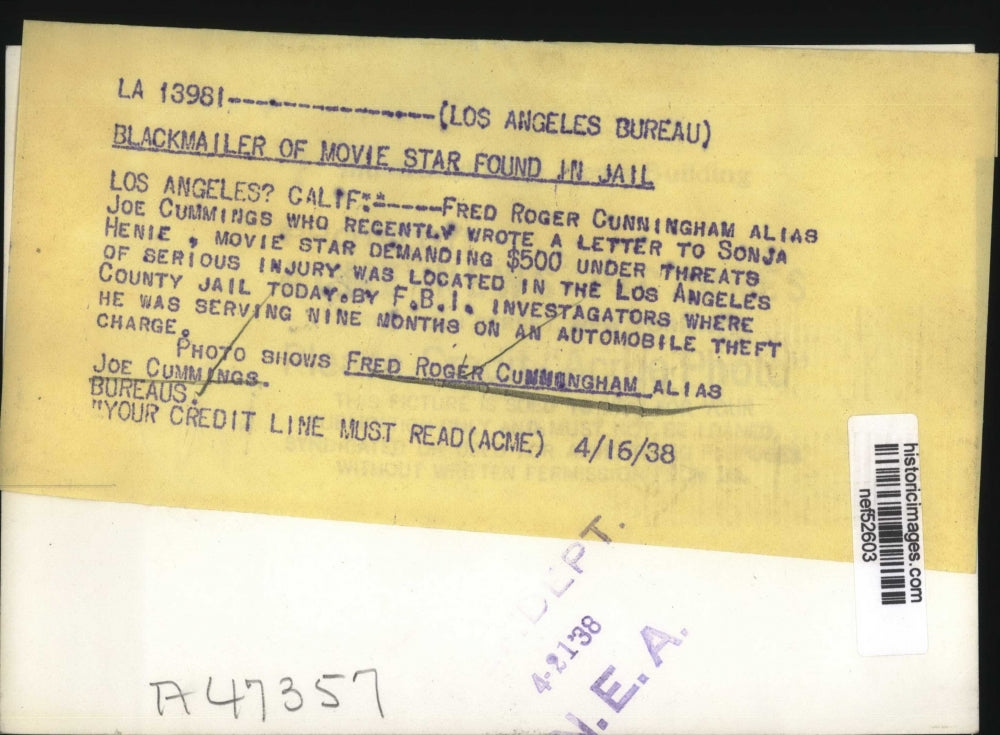 LA 13981-----------------(LOS ANGELES BUREAU)
BLACKMAILER OF MOVIE STAR FOUND IN JAIL
LOS ANGELES? CALIF:*-----FRED ROGER CUNNINGHAM ALIAS
JOE CUMMINGS WHO RECENTLY WROTE A LETTER TO SONJA
HENIE , MOVIE STAR DEMANDING $500 UNDER THREATS
OF SERIOUS INJURY WAS LOCATED IN THE LOS ANGELES
COUNTY JAIL TODAY.BY F.B.I. INVESTAGATORS WHERE
HE WAS SERVING NINE MONTHS ON AN AUTOMOBILE THEFT
CHARGE.
PHOTO SHOWS FRED ROGER CUNNINGHAM ALIAS
JOE CUMMINGS.
BUREAUS.
"YOUR CREDIT LINE MUST READ(ACME) 4/16/38
historicimages.com
nef52603
DEPT.
4-21'38
N.E.A.
A47357